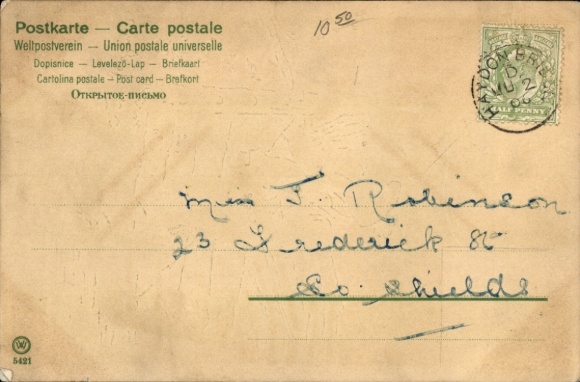 Postkarte — Carte postale
Weltpostverein — Union postale universelle
Dopisnice — Levelező-Lap — Briefkaart
Cartolina postale — Post card — Brefkort
Открытое-письмо
10 50
HALF PENNY
HAYDON BRI
D
2
Miss T. Robinson
23 Frederick St
So. Shields
W
5421